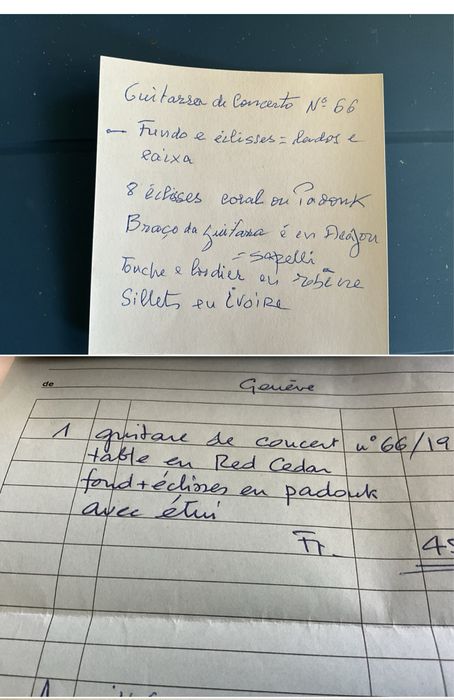 Guitarra de Concerto Nº 66
— Fundo e éclisses = lados e
caixa
8 éclisses coral ou Padouk
Braço da guitarra é en Acajou
= sapelli
Touche e en
Sillets en ivoire
de Genève
1 guitare de concert n° 66/19
table en Red Cedar
fond + éclisses en padouk
avec étui
Fr. 49